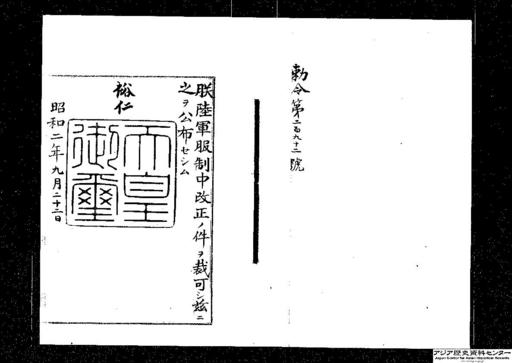 勅令第二百九十二號
朕陸軍服制中改正ノ件ヲ裁可シ茲ニ
之ヲ公布セシム
裕仁
天皇
御璽
昭和二年九月二十二日
アジア歴史資料センター
Japan Center for Asian Historical Records